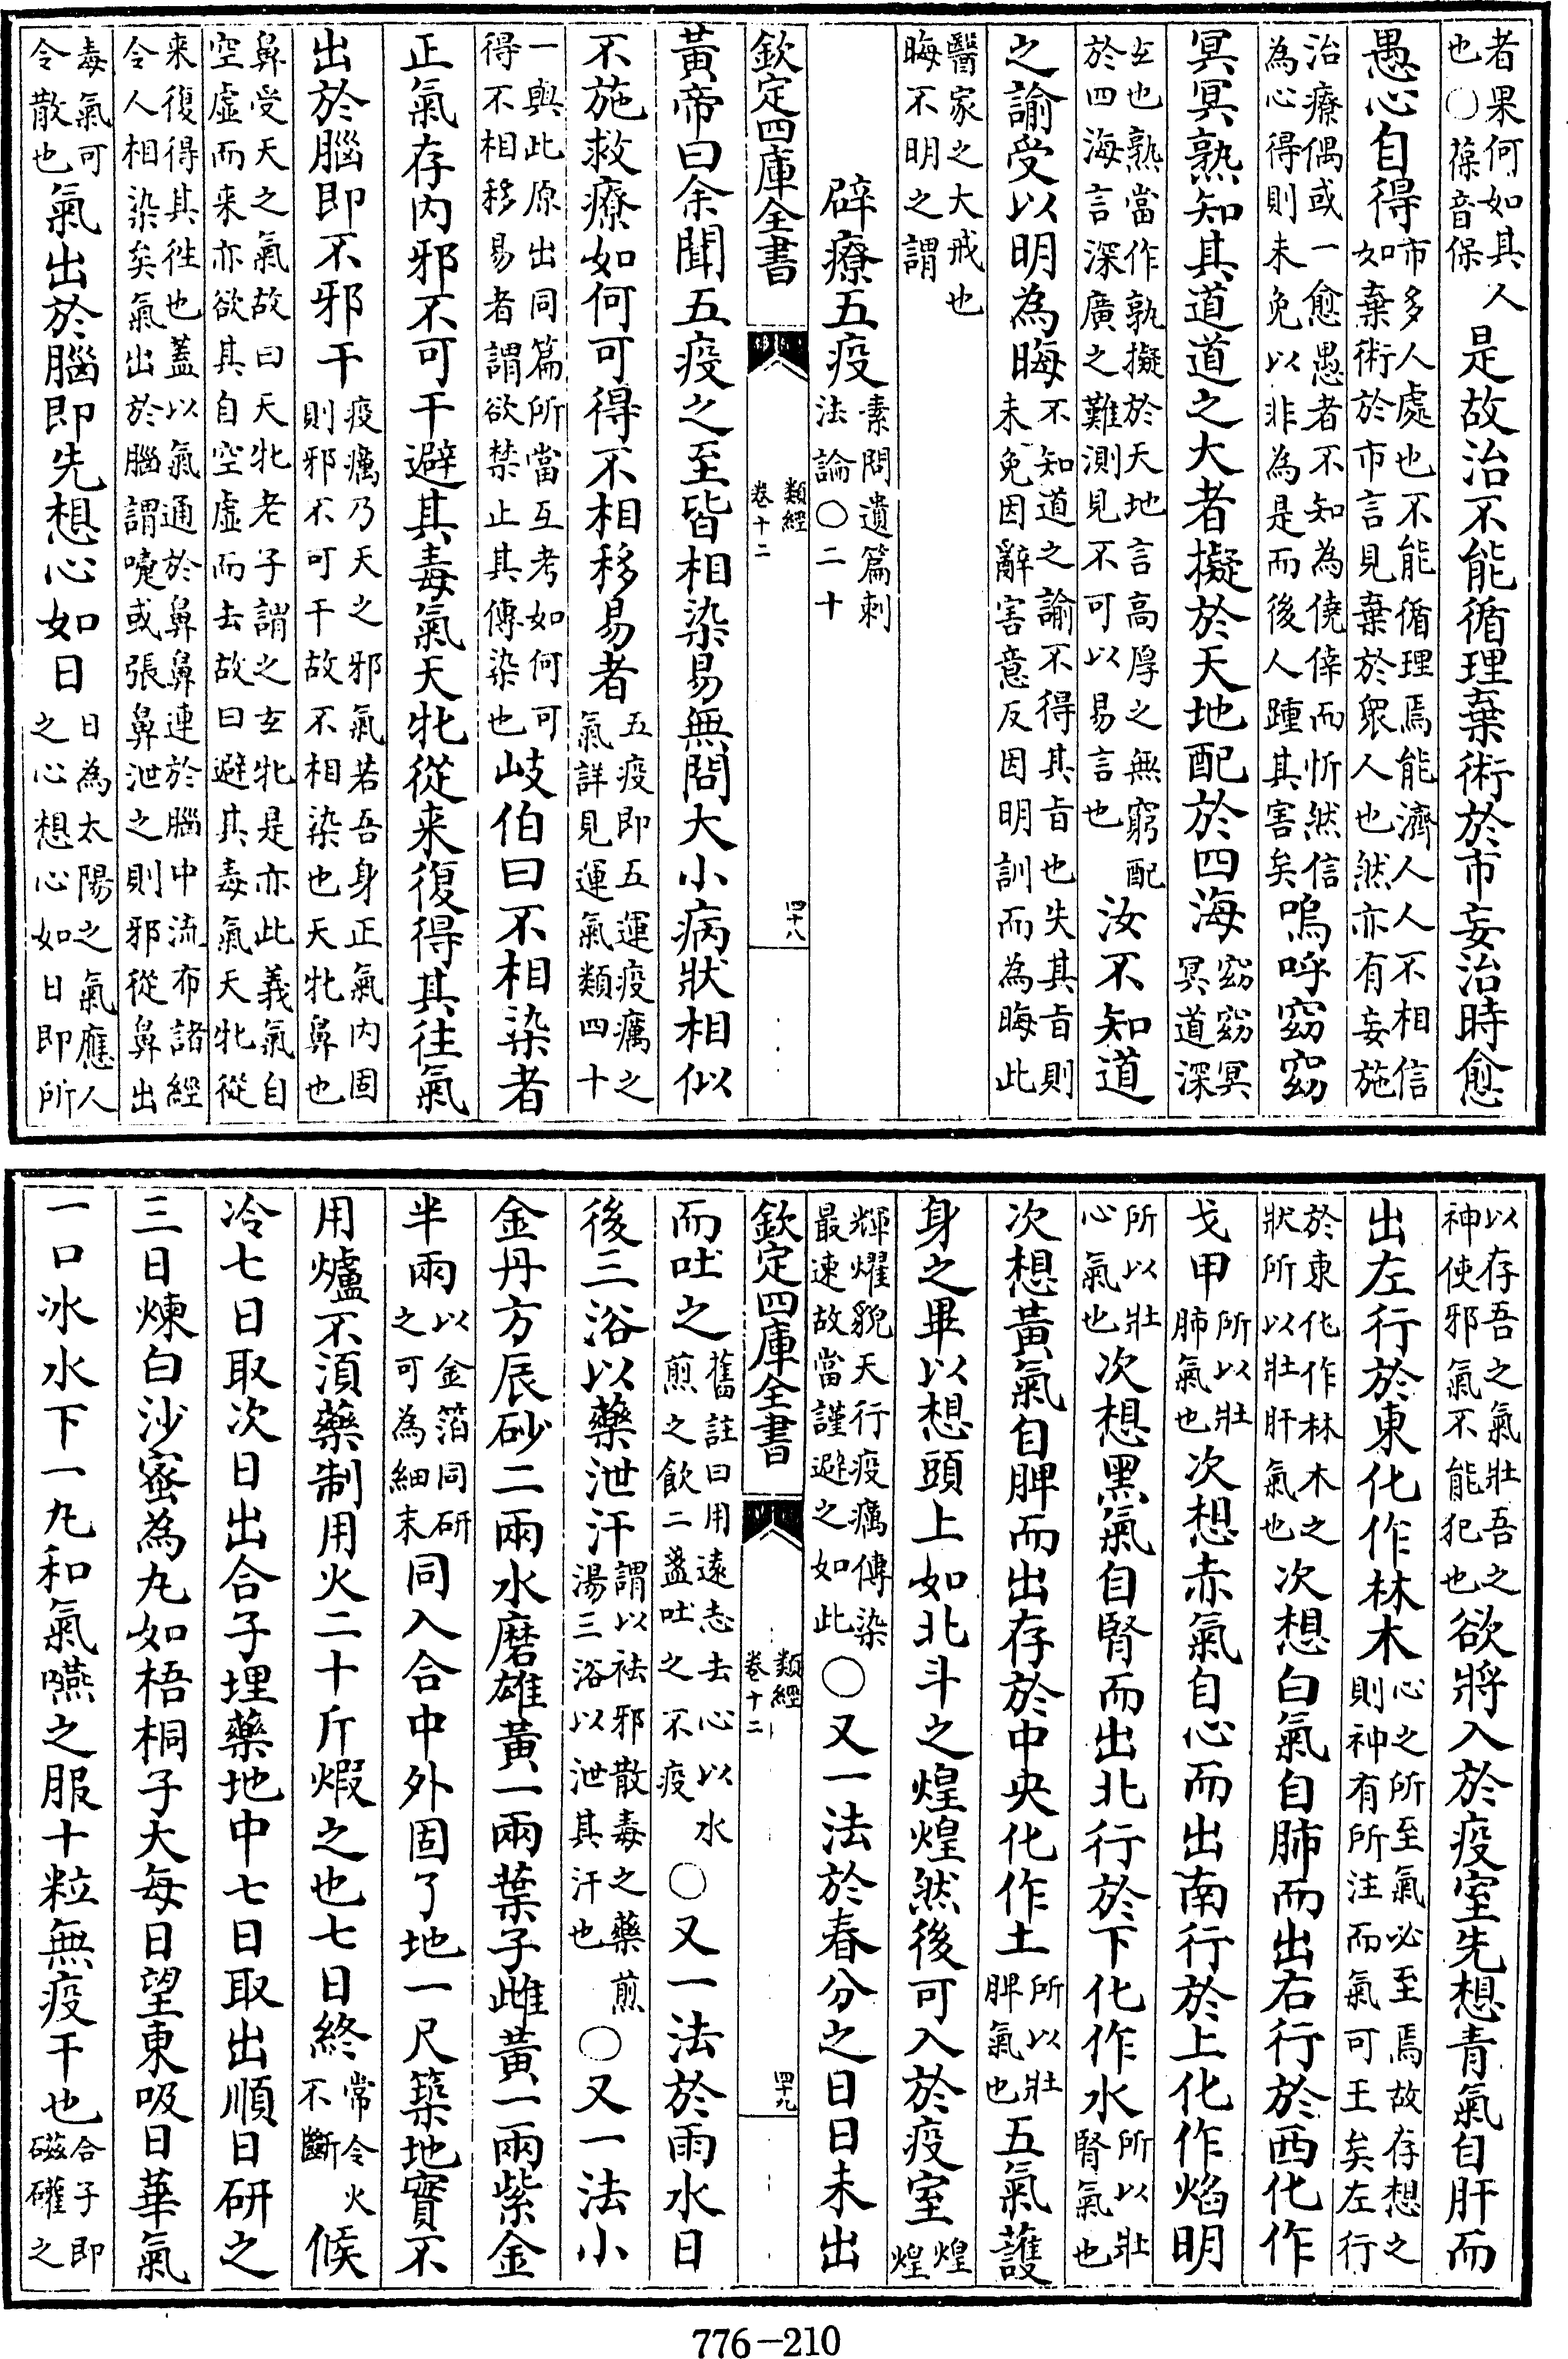 者果何如其人
也○葆音保
是故治不能循理棄術於市妄治時愈
愚心自得
市多人處也不能循理焉能濟人人不相信
如棄術於市言見棄於眾人也然亦有妄施
治療偶或一愈愚者不知為僥倖而忻然信
為心得則未免以非為是而後人踵其害矣
嗚呼窈窈
冥冥熟知其道道之大者擬於天地配於四海
窈窈冥
冥道深
玄也熟當作孰擬於天地言高厚之無窮配
於四海言深廣之難測見不可以易言也
汝不知道
之諭受以明為晦
不知道之諭不得其旨也失其旨則
未免因辭害意反因明訓而為晦此
醫家之大戒也
晦不明之謂
辟療五疫
素問遺篇刺
法論○二十
欽定四庫全書
類經
卷十二
四十八
黃帝曰余聞五疫之至皆相染易無問大小病狀相似
不施救療如何可得不相移易者
五疫即五運疫癘之
氣詳見運氣類四十
一與此原出同篇所當互考如何可
得不相移易者謂欲禁止其傳染也
岐伯曰不相染者
正氣存內邪不可干避其毒氣天牝從来復得其往氣
出於腦即不邪干
疫癘乃天之邪氣若吾身正氣內固
則邪不可干故不相染也天牝鼻也
鼻受天之氣故曰天牝老子謂之玄牝是亦此義氣自
空虛而来亦欲其自空虛而去故曰避其毒氣天牝從
来復得其徃也蓋以氣通於鼻鼻連於腦中流布諸經
令人相染矣氣出於腦謂嚏或張鼻泄之則邪從鼻出
毒氣可
令散也
氣出於腦即先想心如日
日為太陽之氣應人
之心想心如日即所
以存吾之氣壯吾之
神使邪氣不能犯也
欲將入於疫室先想青氣自肝而
出左行於東化作林木
心之所至氣必至焉故存想之
則神有所注而氣可王矣左行
於東化作林木之
狀所以壯肝氣也
次想白氣自肺而出右行於西化作
戈甲
所以壯
肺氣也
次想赤氣自心而出南行於上化作焰明
所以壯
心氣也
次想黑氣自腎而出北行於下化作水
所以壯
腎氣也
次想黃氣自脾而出存於中央化作土
所以壯
脾氣也
五氣護
身之畢以想頭上如北斗之煌煌然後可入於疫室
煌
煌
輝燿貌天行疫癘傳染
最速故當謹避之如此
○又一法於春分之日日未出
欽定四庫全書
類經
卷十二
四十九
而吐之
舊註曰用遠志去心以水
煎之飲二盞吐之不疫
○又一法於雨水日
後三浴以藥泄汗
謂以祛邪散毒之藥煎
湯三浴以泄其汗也
○又一法小
金丹方辰砂二兩水磨雄黃一兩葉子雌黃一兩紫金
半兩
以金箔同研
之可為細末
同入合中外固了地一尺築地實不
用爐不須藥制用火二十斤煆之也七日終
常令火
不斷
候
冷七日取次日出合子埋藥地中七日取出順日研之
三日煉白沙蜜為丸如梧桐子大每日望東吸日華氣
一口氷水下一丸和氣嚥之服十粒無疫干也
合子即
磁礶之
776-210